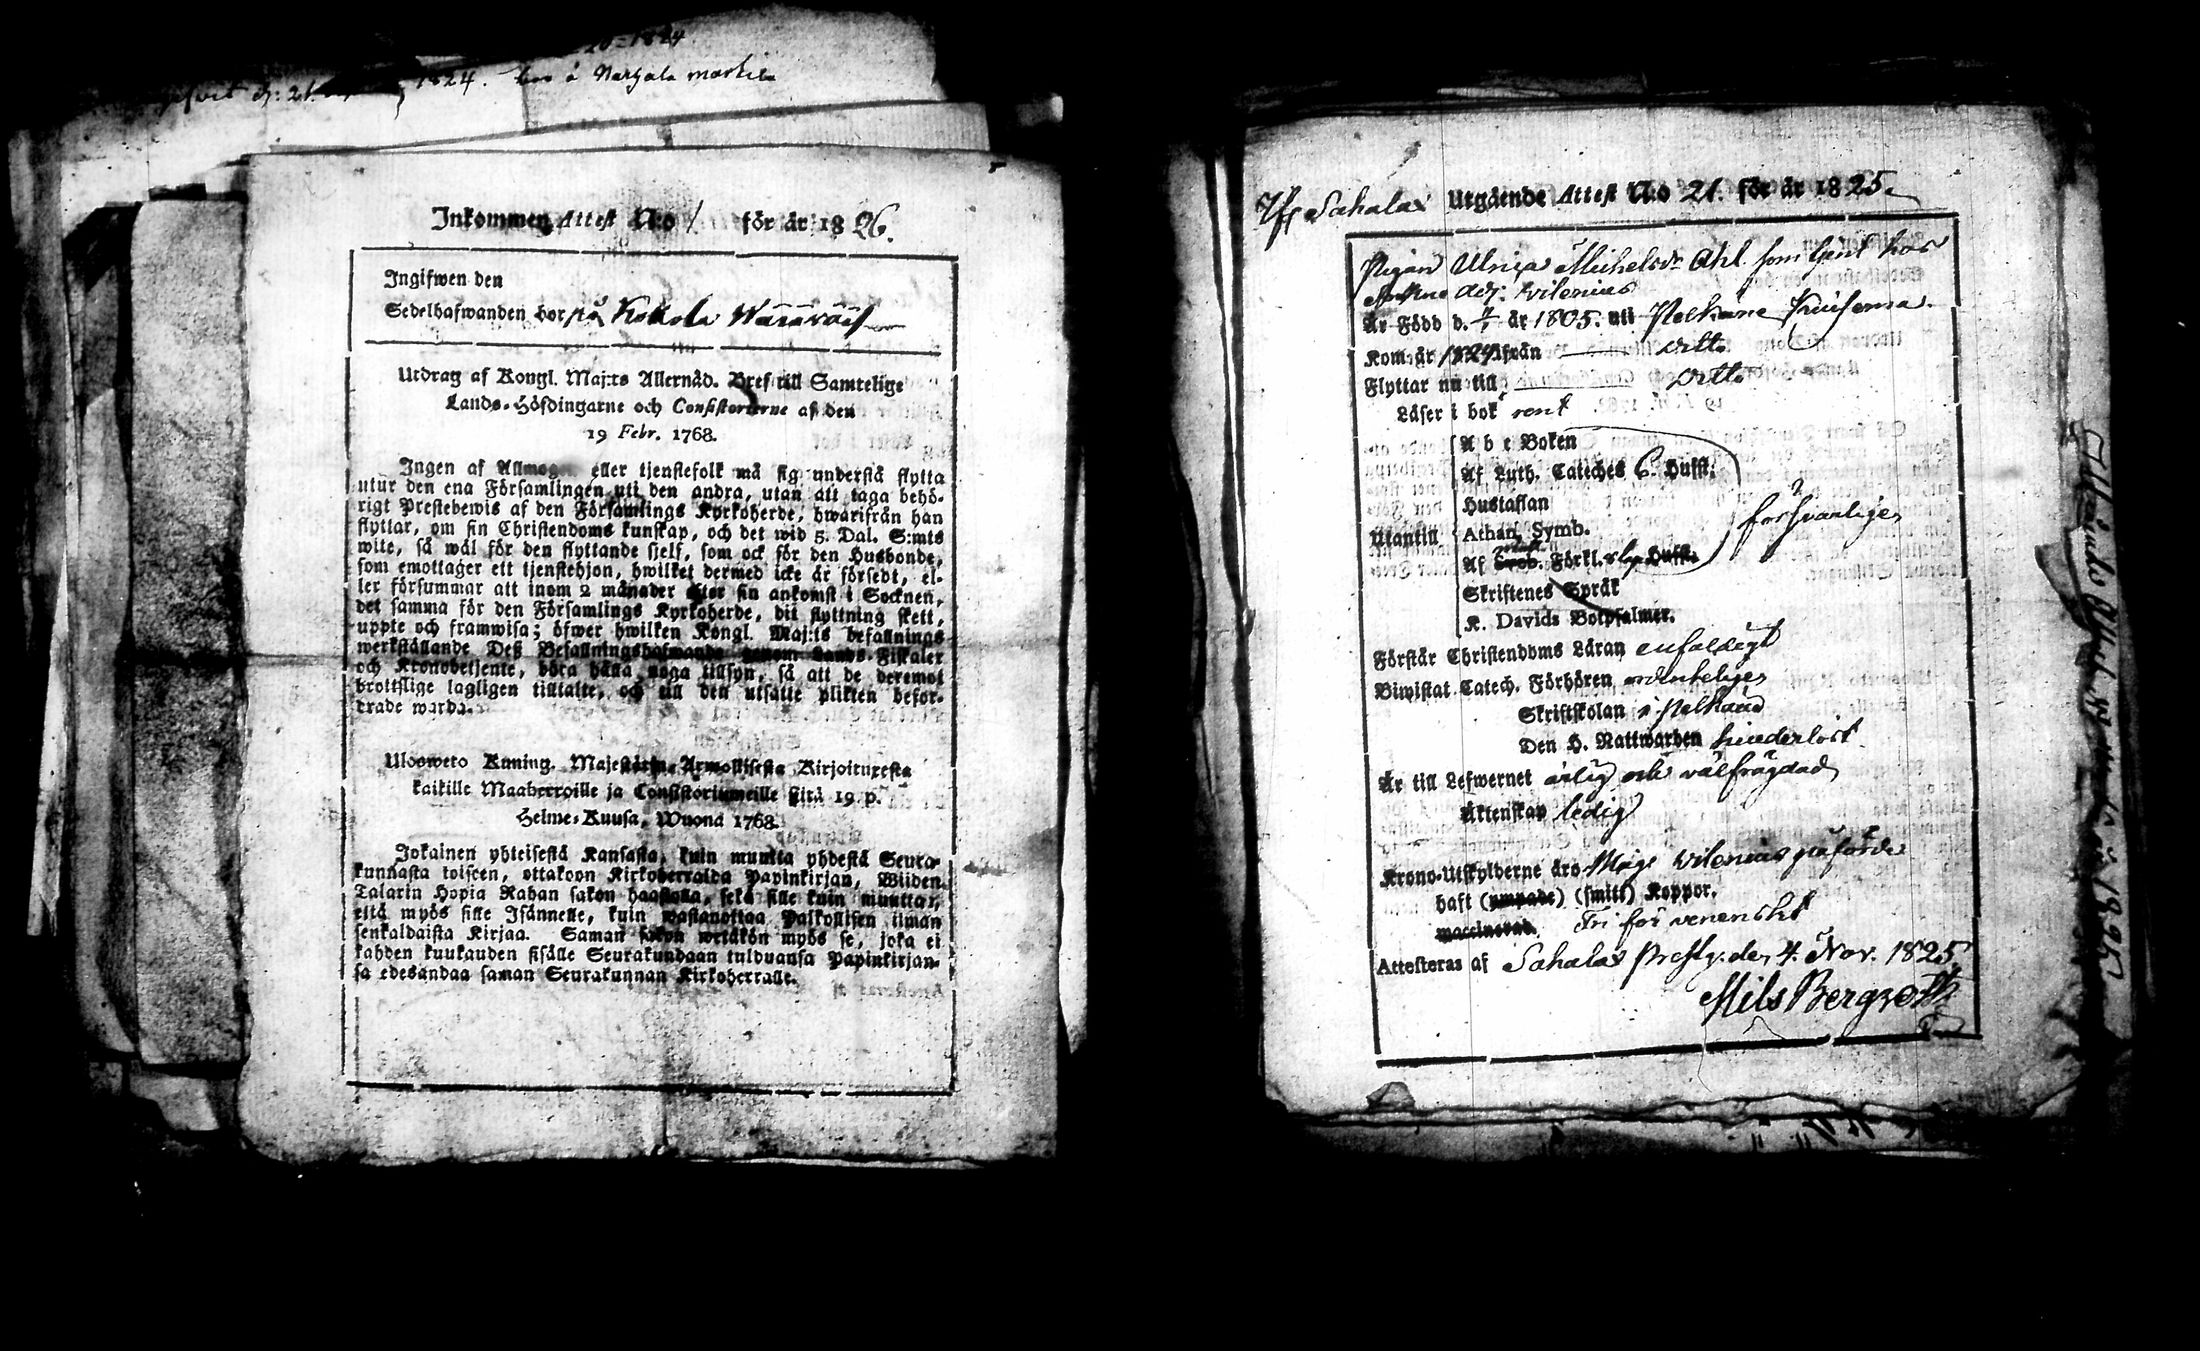 20 1824
d: 21. 1824.
Inkommen Attest N:o 1 för år 1826.
Ingifwen den
Sedelhafwanden bor på Kokola
Utdrag af Kongl. Maj:ts Allernåd. Bref till Samtelige
Lands-Höfdingarne och Consistorierne af den
19 Febr. 1768.
Ingen af Allmogen eller tjenstefolk må sig understå flytta
utur den ena Församlingen uti den andra, utan att taga behö-
rigt Prestebewis af den Församlings Kyrkoherde, hwarifrån han
flyttar, om sin Christendoms kunskap, och det wid 5. Dal. S:mts
wite, så wäl för den flyttande sjelf, som ock för den Husbonde,
som emottager ett tjenstehjon, hwilket dermed icke är försedt, el-
ler försummar att inom 2 månader efter sin ankomst i Socknen,
det samma för den Församlings Kyrkoherde, dit flyttning skett,
uppte och framwisa; öfwer hwilken Kongl. Maj:ts befallnings
werkställande Deß Befallningshafwande genom Lands-Fiskaler
och Kronobetjente, böra hålla noga tillsyn, så att de deremot
brottslige lagligen tilltalte, och till den utsatte plikten befor-
drade warda.
Ulosweto Kuning. Majestätin Armollisesta Kirjoituxesta
kaikille Maaherroille ja Consistoriumeille sitä 19 p.
Helme-Kuusa, Wuona 1768.
Jokainen yhteisestä Kansasta, kuin muutta yhdestä Seura-
kunnasta toiseen, ottakoon Kirkoherralda Papinkirjan, Wiiden
Talarin Hopia Rahan sakon haastolla, sekä sille kuin muuttaa,
että myös sille Isännelle, kuin wastanottaa Palkollisen ilman
senkaldaista Kirjaa. Saman sakon wetäkön myös se, joka ei
kahden kuukauden sisälle Seurakundaan tulduansa Papinkirjan-
sa edesandaa saman Seurakunnan Kirkoherralle.
Sahalax Utgående Attest N:o 21. för år 1825.
Pigan Ulrica Michelsdr Ahl. som tjent hos
Adj: Wilenius
Är Född d. år 1805. uti Pelkäne
Kom år 1824 ifrån Ditto
Flyttar nu till Ditto
Läser i bok rent
Utantill
A b c Boken
Af Luth. Cateches 6. Hufst:
Hustaflan
Athan. Symb.
Af Förkl. Hufst.
Skriftenes Språk
K. Davids Botpsalmer.
försvarligen
Förstår Christendoms Läran enfaldigt
Biwistat Catech. Förhören ordenteligen
Skriftskolan i Pelkäne
Den H. Nattwarden hinderlöst
Är till Lefwernet ärlig och välfrägdad
Äktenskap ledig
Krono-Utskylderne äro Mag: Wilenius påförde
haft (ympade) (smitt) Koppor.
waccinerad. Fri för veneriskt
Attesteras af Sahalax Prestg: den 4. Nov. 1825
Nils Bergroth